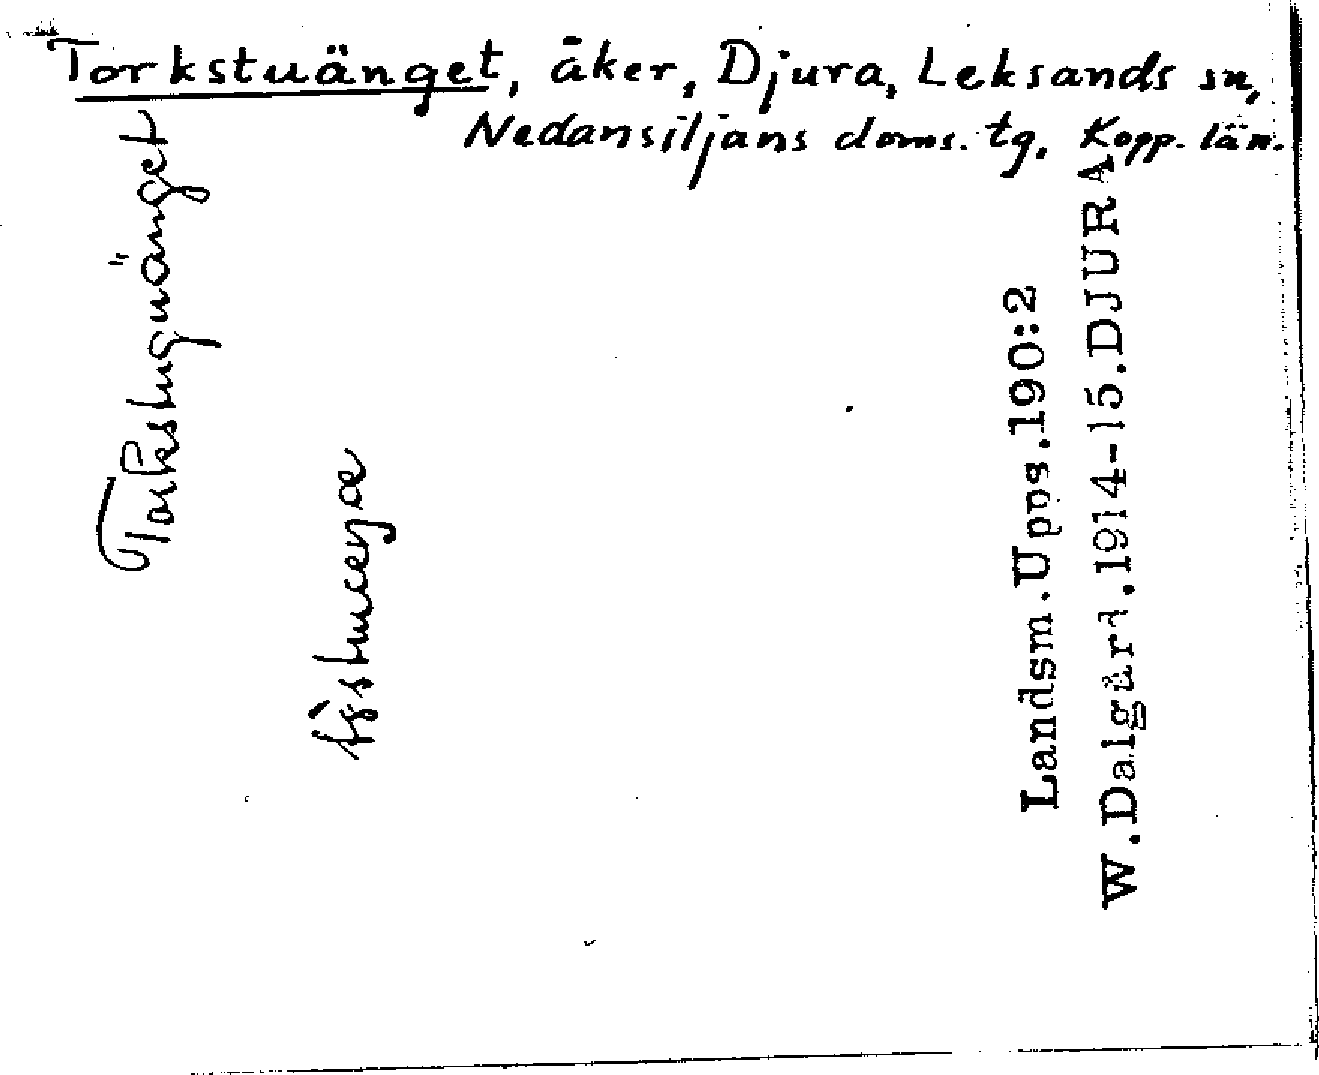 Torkstuänget, åker, Djura, Leksands sn,
Nedansiljans doms. tg. Kopp. län.
Torkstuguänget
Landsm. Upps. 190:2
W. Dalgård. 1914-15. DJURA